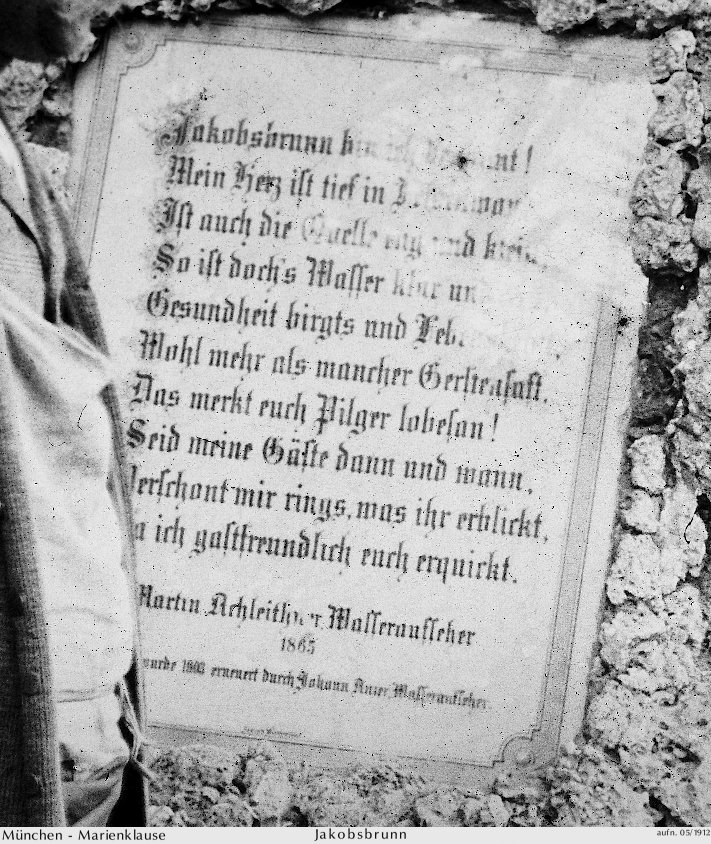 Jakobsbrunn bin ich benannt!
Mein Herz ist tief in
Ist auch die Quelle eng und klein,
So ist doch's Wasser klar und
Gesundheit birgts und
Wohl mehr als mancher Gerstensaft.
Das merkt euch Pilger lobesan!
Seid meine Gäste dann und wann,
Verschont mir rings, was ihr erblickt,
Da ich gastfreundlich euch erquickt.
Martin Achleithner Wasseraufseher
1865
wurde erneuert durch Johann Wasseraufseher.
München - Marienklause
Jakobsbrunn
aufn. 05/1912